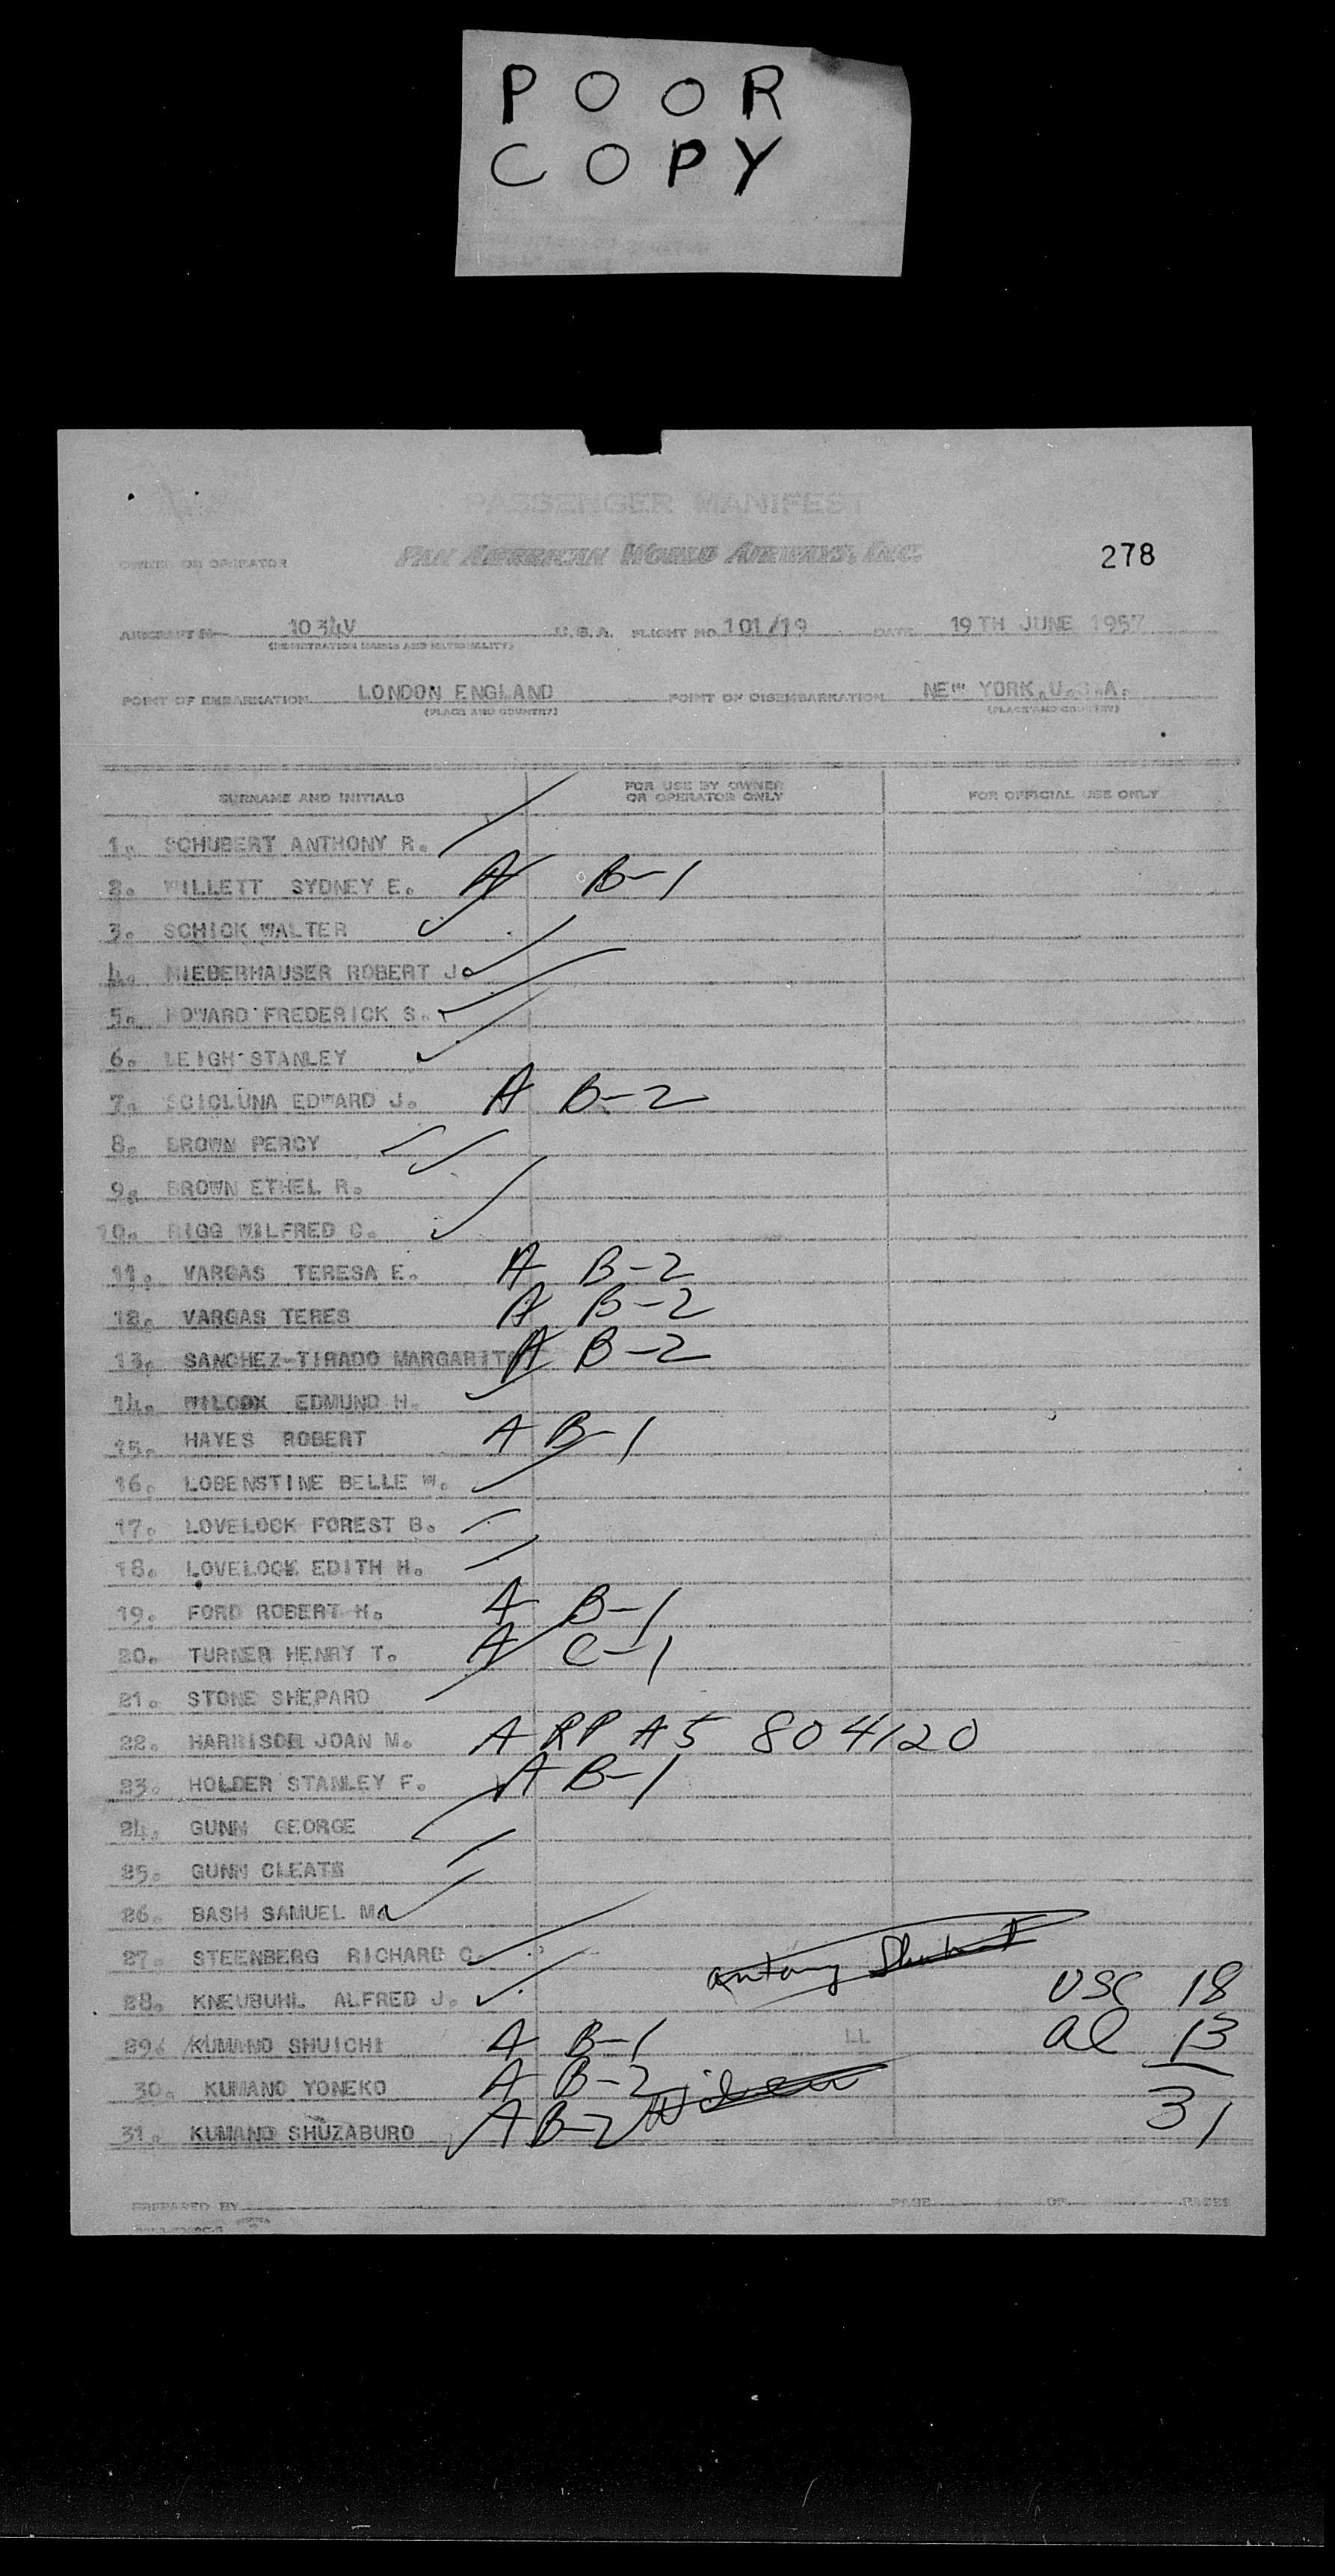 POOR
COPY
PASSENGER MANIFEST
OWNER OR OPERATOR PAN AMERICAN WORLD AIRWAYS, INC. 278
AIRCRAFT N 1034V U.S.A. FLIGHT NO. 101/19 DATE 19TH JUNE 1957
(REGISTRATION MARKS AND NATIONALITY)
POINT OF EMBARKATION LONDON ENGLAND POINT OF DISEMBARKATION NEW YORK U.S.A.
(PLACE AND COUNTRY) (PLACE AND COUNTRY)
SURNAME AND INITIALS FOR USE BY OWNER OR OPERATOR ONLY FOR OFFICIAL USE ONLY
1. SCHUBERT ANTHONY R.
2. WILLETT SYDNEY E. A B-1
3. SCHICK WALTER
4. NIEDERHAUSER ROBERT J.
5. HOWARD FREDERICK S.
6. LEIGH STANLEY
7. SCICLUNA EDWARD J. A B-2
8. BROWN PERCY
9. BROWN ETHEL R.
10. RIGG WILFRED C.
11. VARGAS TERESA E. A B-2
12. VARGAS TERES A B-2
13. SANCHEZ-TIRADO MARGARITA A B-2
14. WILCOX EDMUND H.
15. HAYES ROBERT A B-1
16. LOBENSTINE BELLE W.
17. LOVELOCK FOREST B.
18. LOVELOCK EDITH H.
19. FORD ROBERT H. A B-1
20. TURNER HENRY T. A C-1
21. STONE SHEPARD
22. HARRISON JOAN M. A RP A5 804120
23. HOLDER STANLEY F. A B-1
24. GUNN GEORGE
25. GUNN CLEATS
26. BASH SAMUEL M.
27. STEENBERG RICHARD C.
28. KNEUBUHL ALFRED J. USC 18
29. KUMANO SHUICHI A B-1 LL al 13
30. KUMANO YONEKO A B-2
31. KUMANO SHUZABURO A B-2 31
PREPARED BY PAGE OF PAGES